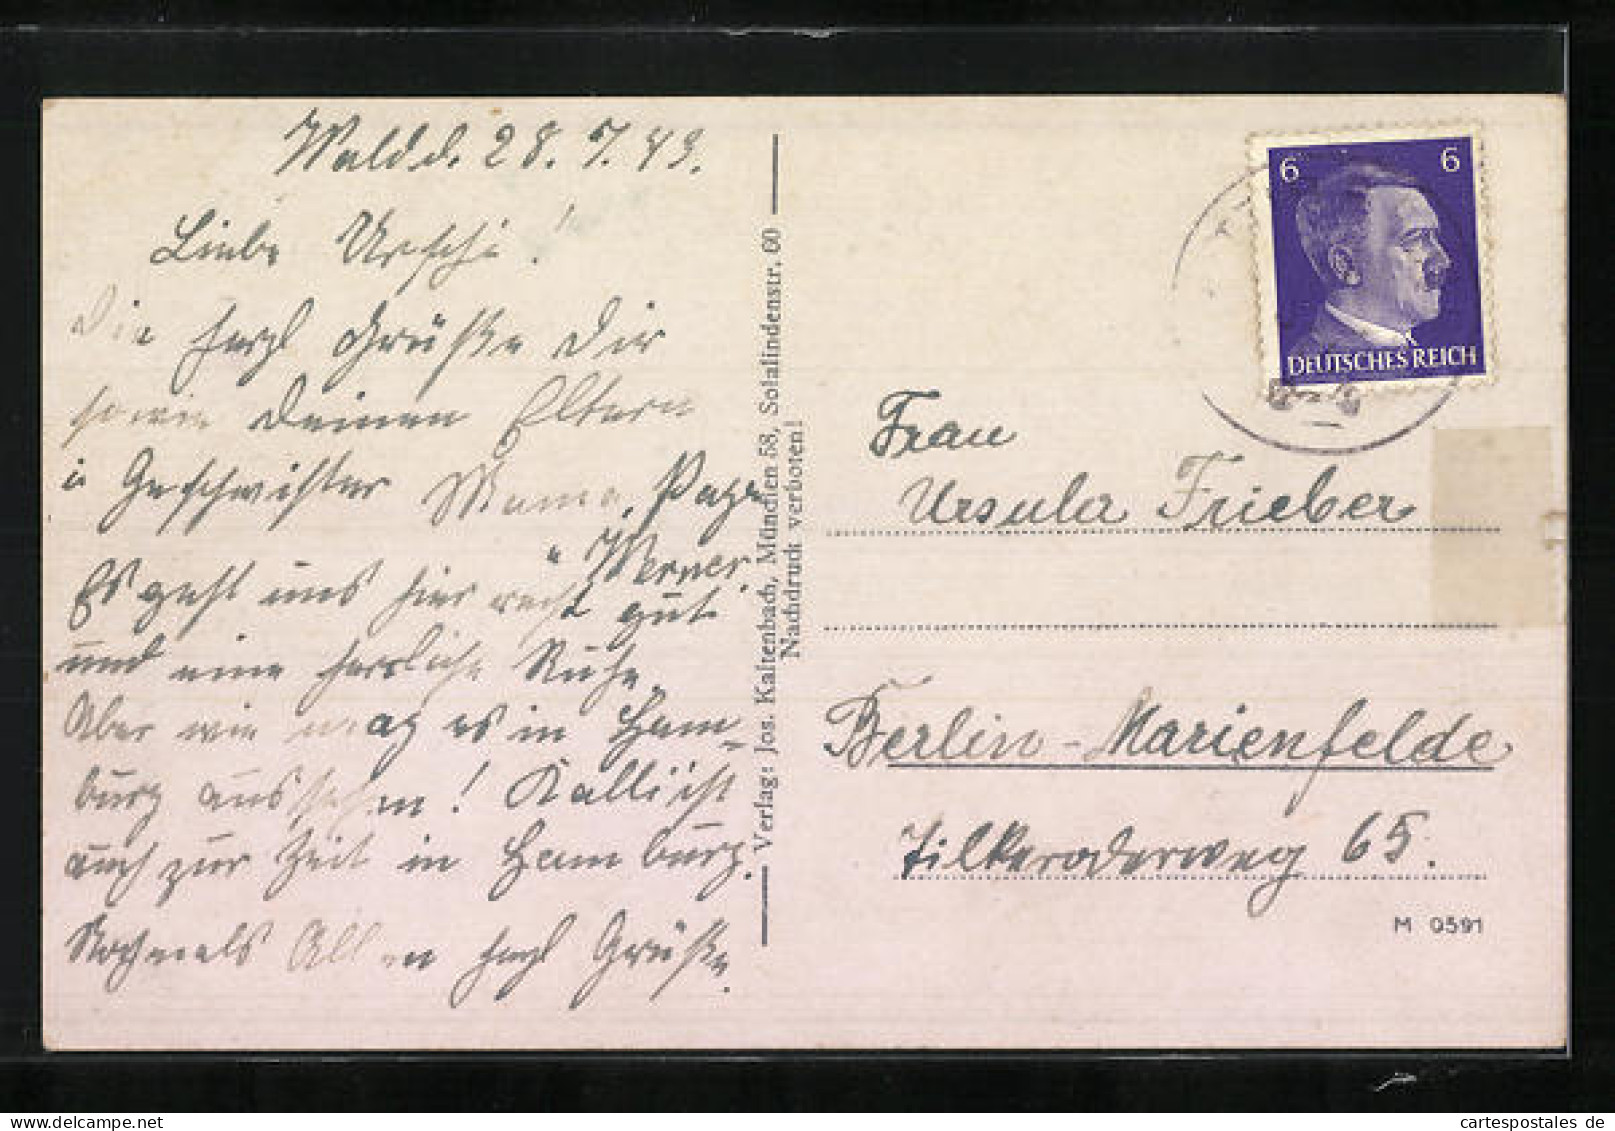 Waldd. 28. 7. 43.
Liebe Urschi!
Die herzl Grüße Dir
sowie Deinen Eltern
u Geschwister Mama, Papa
u Werner.
Es geht uns hier recht gut
und eine herrliche Ruhe.
Aber wie mag es in Ham-
burg aussehen! Kalli ist
auch zur Zeit in Hamburg.
Nochmals Allen herzl Grüße.
Verlag: Jos. Kaltenbach, München 58, Solalindenstr. 60
Nachdruck verboten!
6 6
DEUTSCHES REICH
Frau
Ursula Frieber
Berlin-Marienfelde
Tilkeroderweg 65.
M 0591
cartespostales de